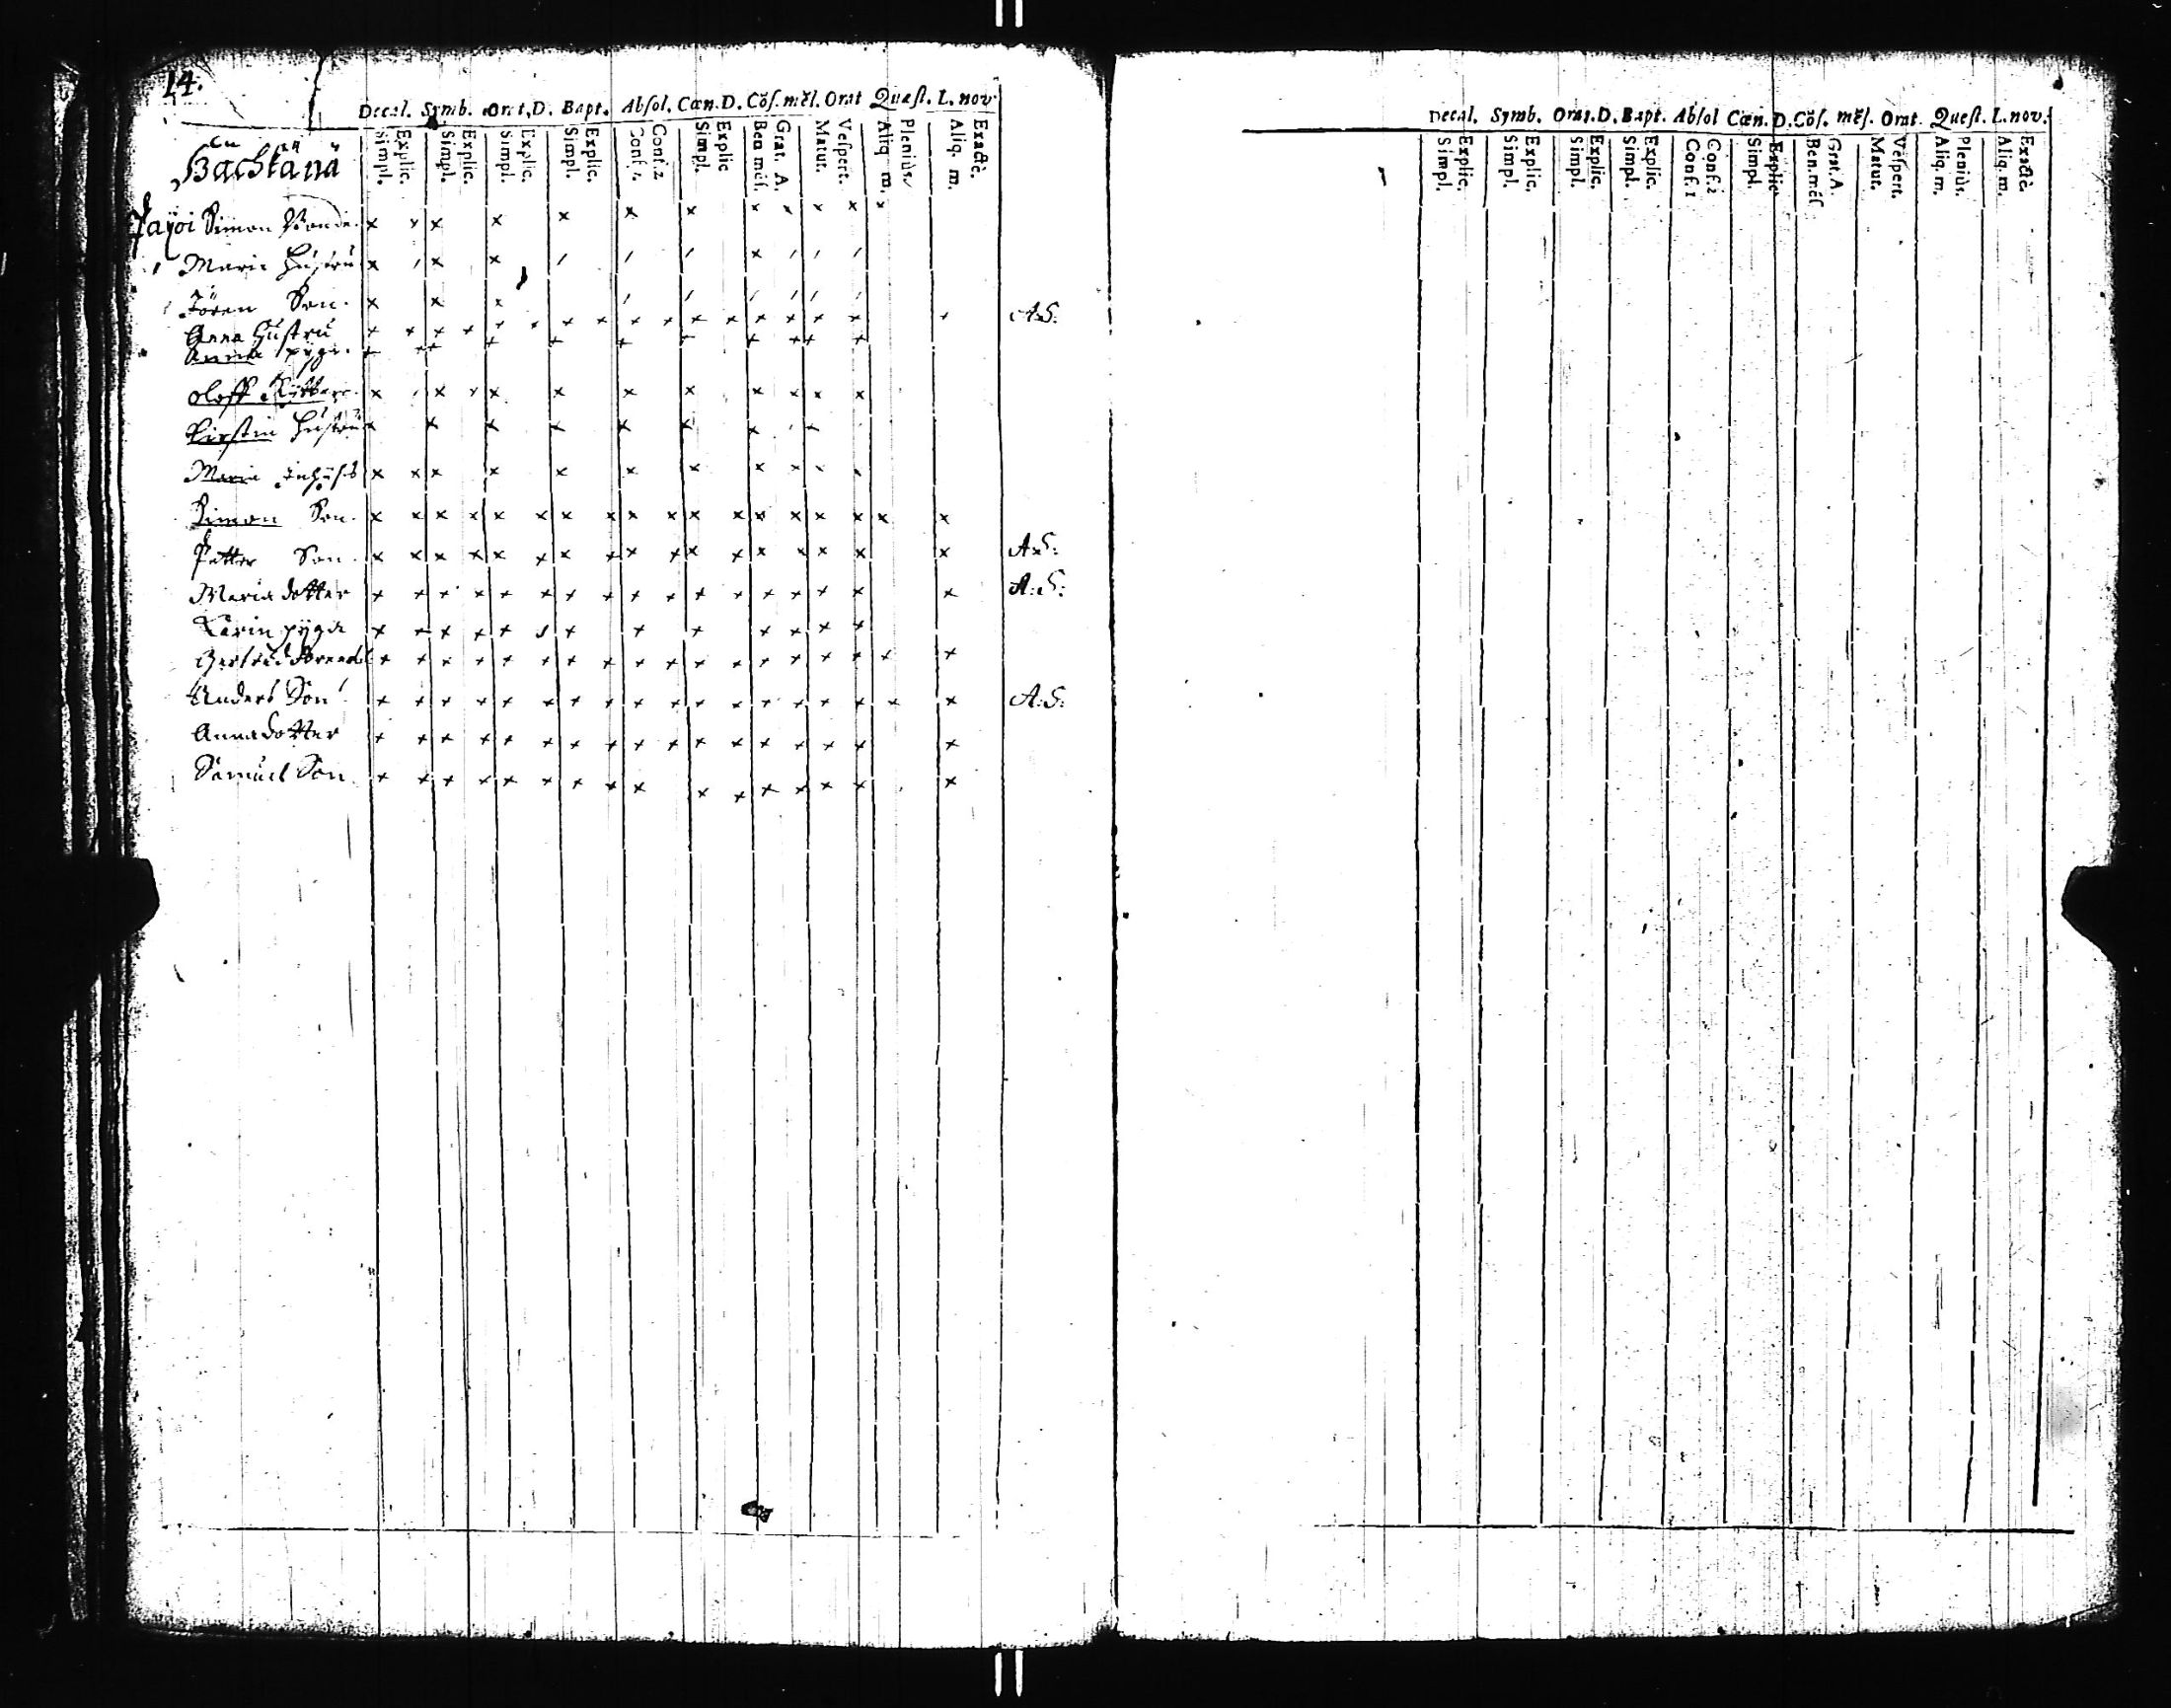 14.
Decal. Symb. Orat. D. Bapt. Absol. Cœn. D. Cōs. mēs. Orat Quæst. L. nov.
Explic. Simpl. Explic. Simpl. Explic. Simpl. Explic. Simpl. Conf. 2 Conf. 1. Explic Simpl. Grat. A. Ben mēs. Vespert. Matut. Plenius. Aliq m. Exactè. Aliq. m.
Simon Bonde
Maria Hustru
Jören Son. A.S.
Anna Hustru
Anna pyga.
Oloff
Kirstin Hustru
Maria Inhyses
Simon Son.
Petter Son A.S:
Maria dotter A:S:
Karin pyga
Anders Son A:S:
Anna dotter
Samuel Son
Decal. Symb. Orat. D. Bapt. Absol Cœn. D. Cōs. mēs. Orat. Quest. L. nov.
Explic. Simpl. Explic. Simpl. Explic. Simpl. Explic. Simpl. Conf. 2 Conf. 1 Explic. Simpl. Grat. A. Ben. mēs Vespert. Matut. Plenius. Aliq. m. Exactè. Aliq. m.